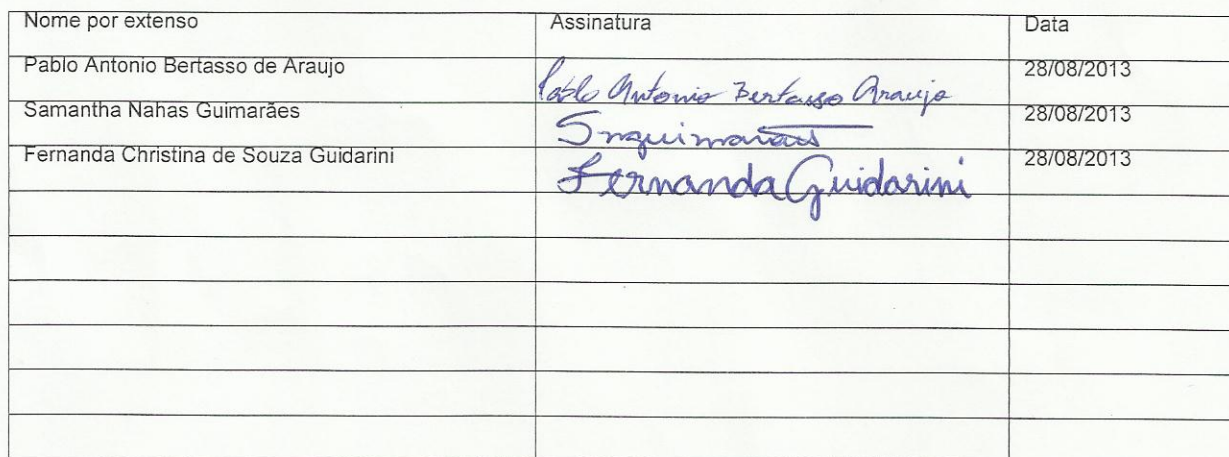 Nome por extenso Assinatura Data
Pablo Antonio Bertasso de Araujo Pablo Antonio Bertasso Araujo 28/08/2013
Samantha Nahas Guimarães Snguimarães 28/08/2013
Fernanda Christina de Souza Guidarini Fernanda Guidarini 28/08/2013